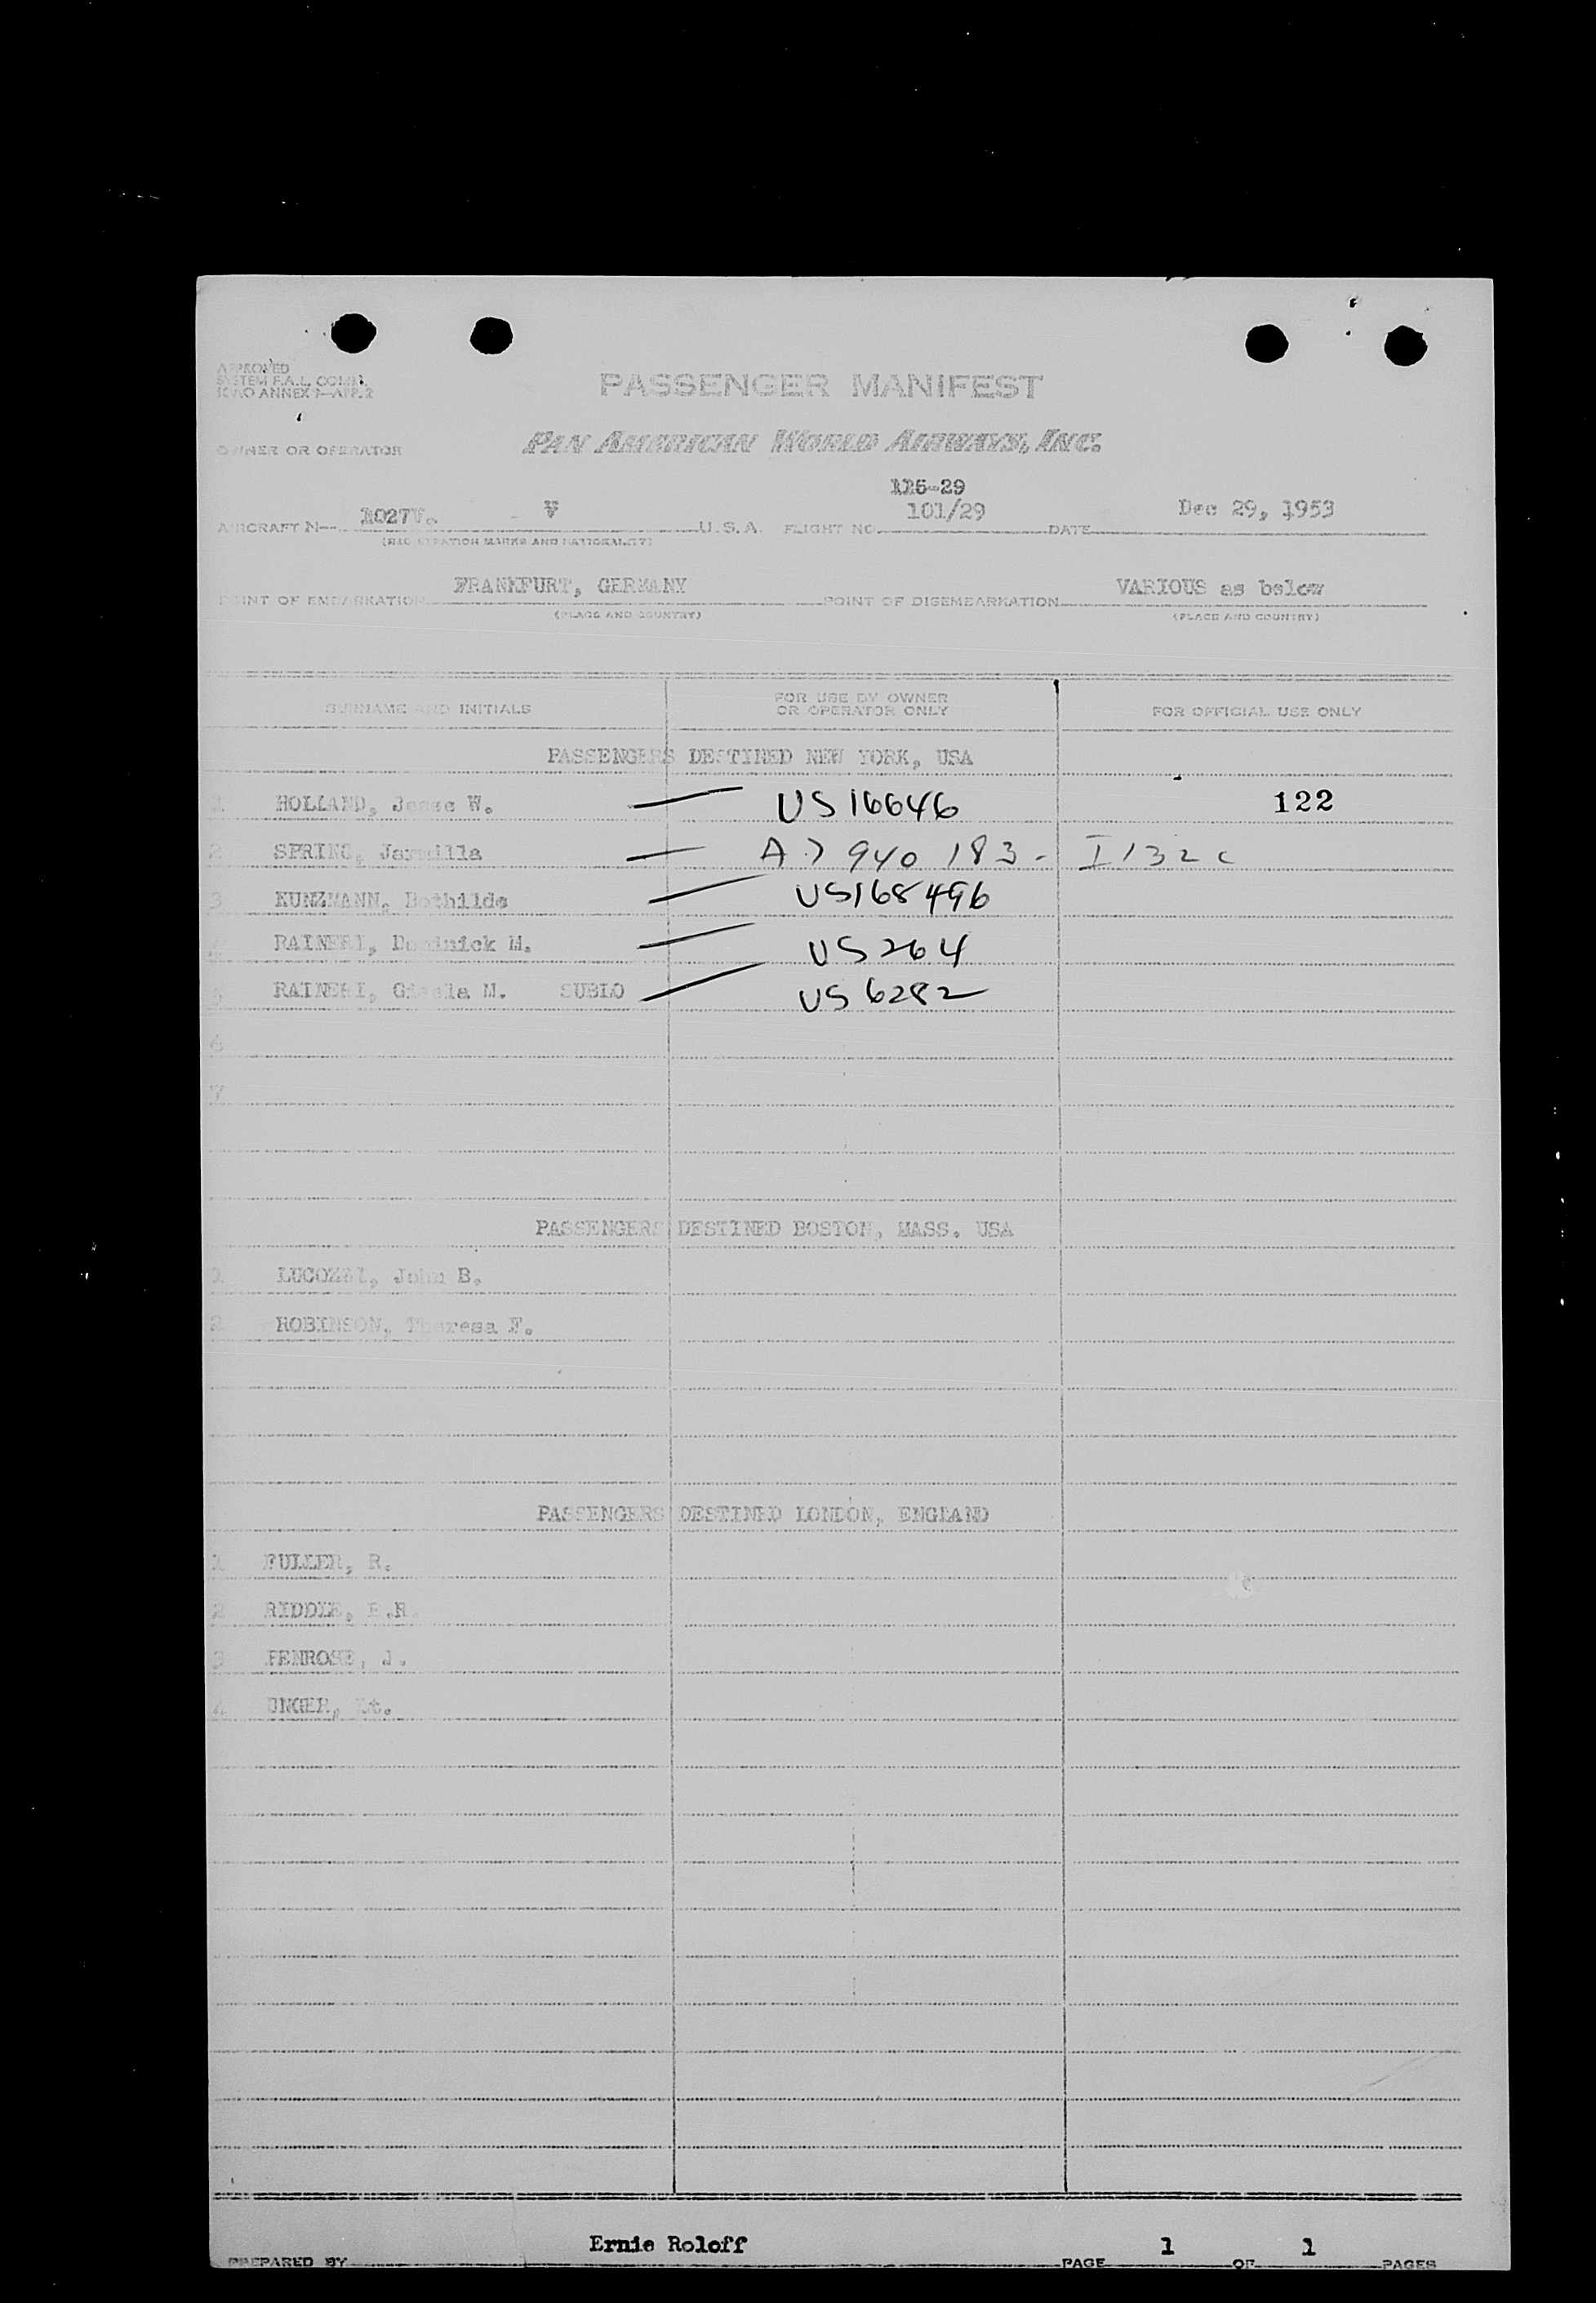 APPROVED
SYSTEM F.A.L. COMM.
ICAO ANNEX 9—APP. 2
PASSENGER MANIFEST
OWNER OR OPERATOR PAN AMERICAN WORLD AIRWAYS, INC.
115-29
AIRCRAFT N— 1027V. V U.S.A. FLIGHT NO. 101/29 DATE Dec 29, 1953
(REGISTRATION MARKS AND NATIONALITY)
POINT OF EMBARKATION FRANKFURT, GERMANY POINT OF DISEMBARKATION VARIOUS as below
(PLACE AND COUNTRY) (PLACE AND COUNTRY)
SURNAME AND INITIALS FOR USE BY OWNER OR OPERATOR ONLY FOR OFFICIAL USE ONLY
PASSENGERS DESTINED NEW YORK, USA
1 HOLLAND, Jesse W. US 16646 122
2 SPRING, A7 940 183 - I 132 c
3 KUNZMANN, Bothilde US168496
4 RAINERI, Dominick M. US 264
5 RAINERI, Gisela M. SUBLO US 6282
6
7
PASSENGERS DESTINED BOSTON, MASS. USA
1 John B.
2 ROBINSON, Theresa F.
PASSENGERS DESTINED LONDON, ENGLAND
1 FULLER, R.
2 RIDDLE, E.R.
3 PENROSE, J.
4 UNGER, Lt.
PREPARED BY Ernie Roloff PAGE 1 OF 1 PAGES